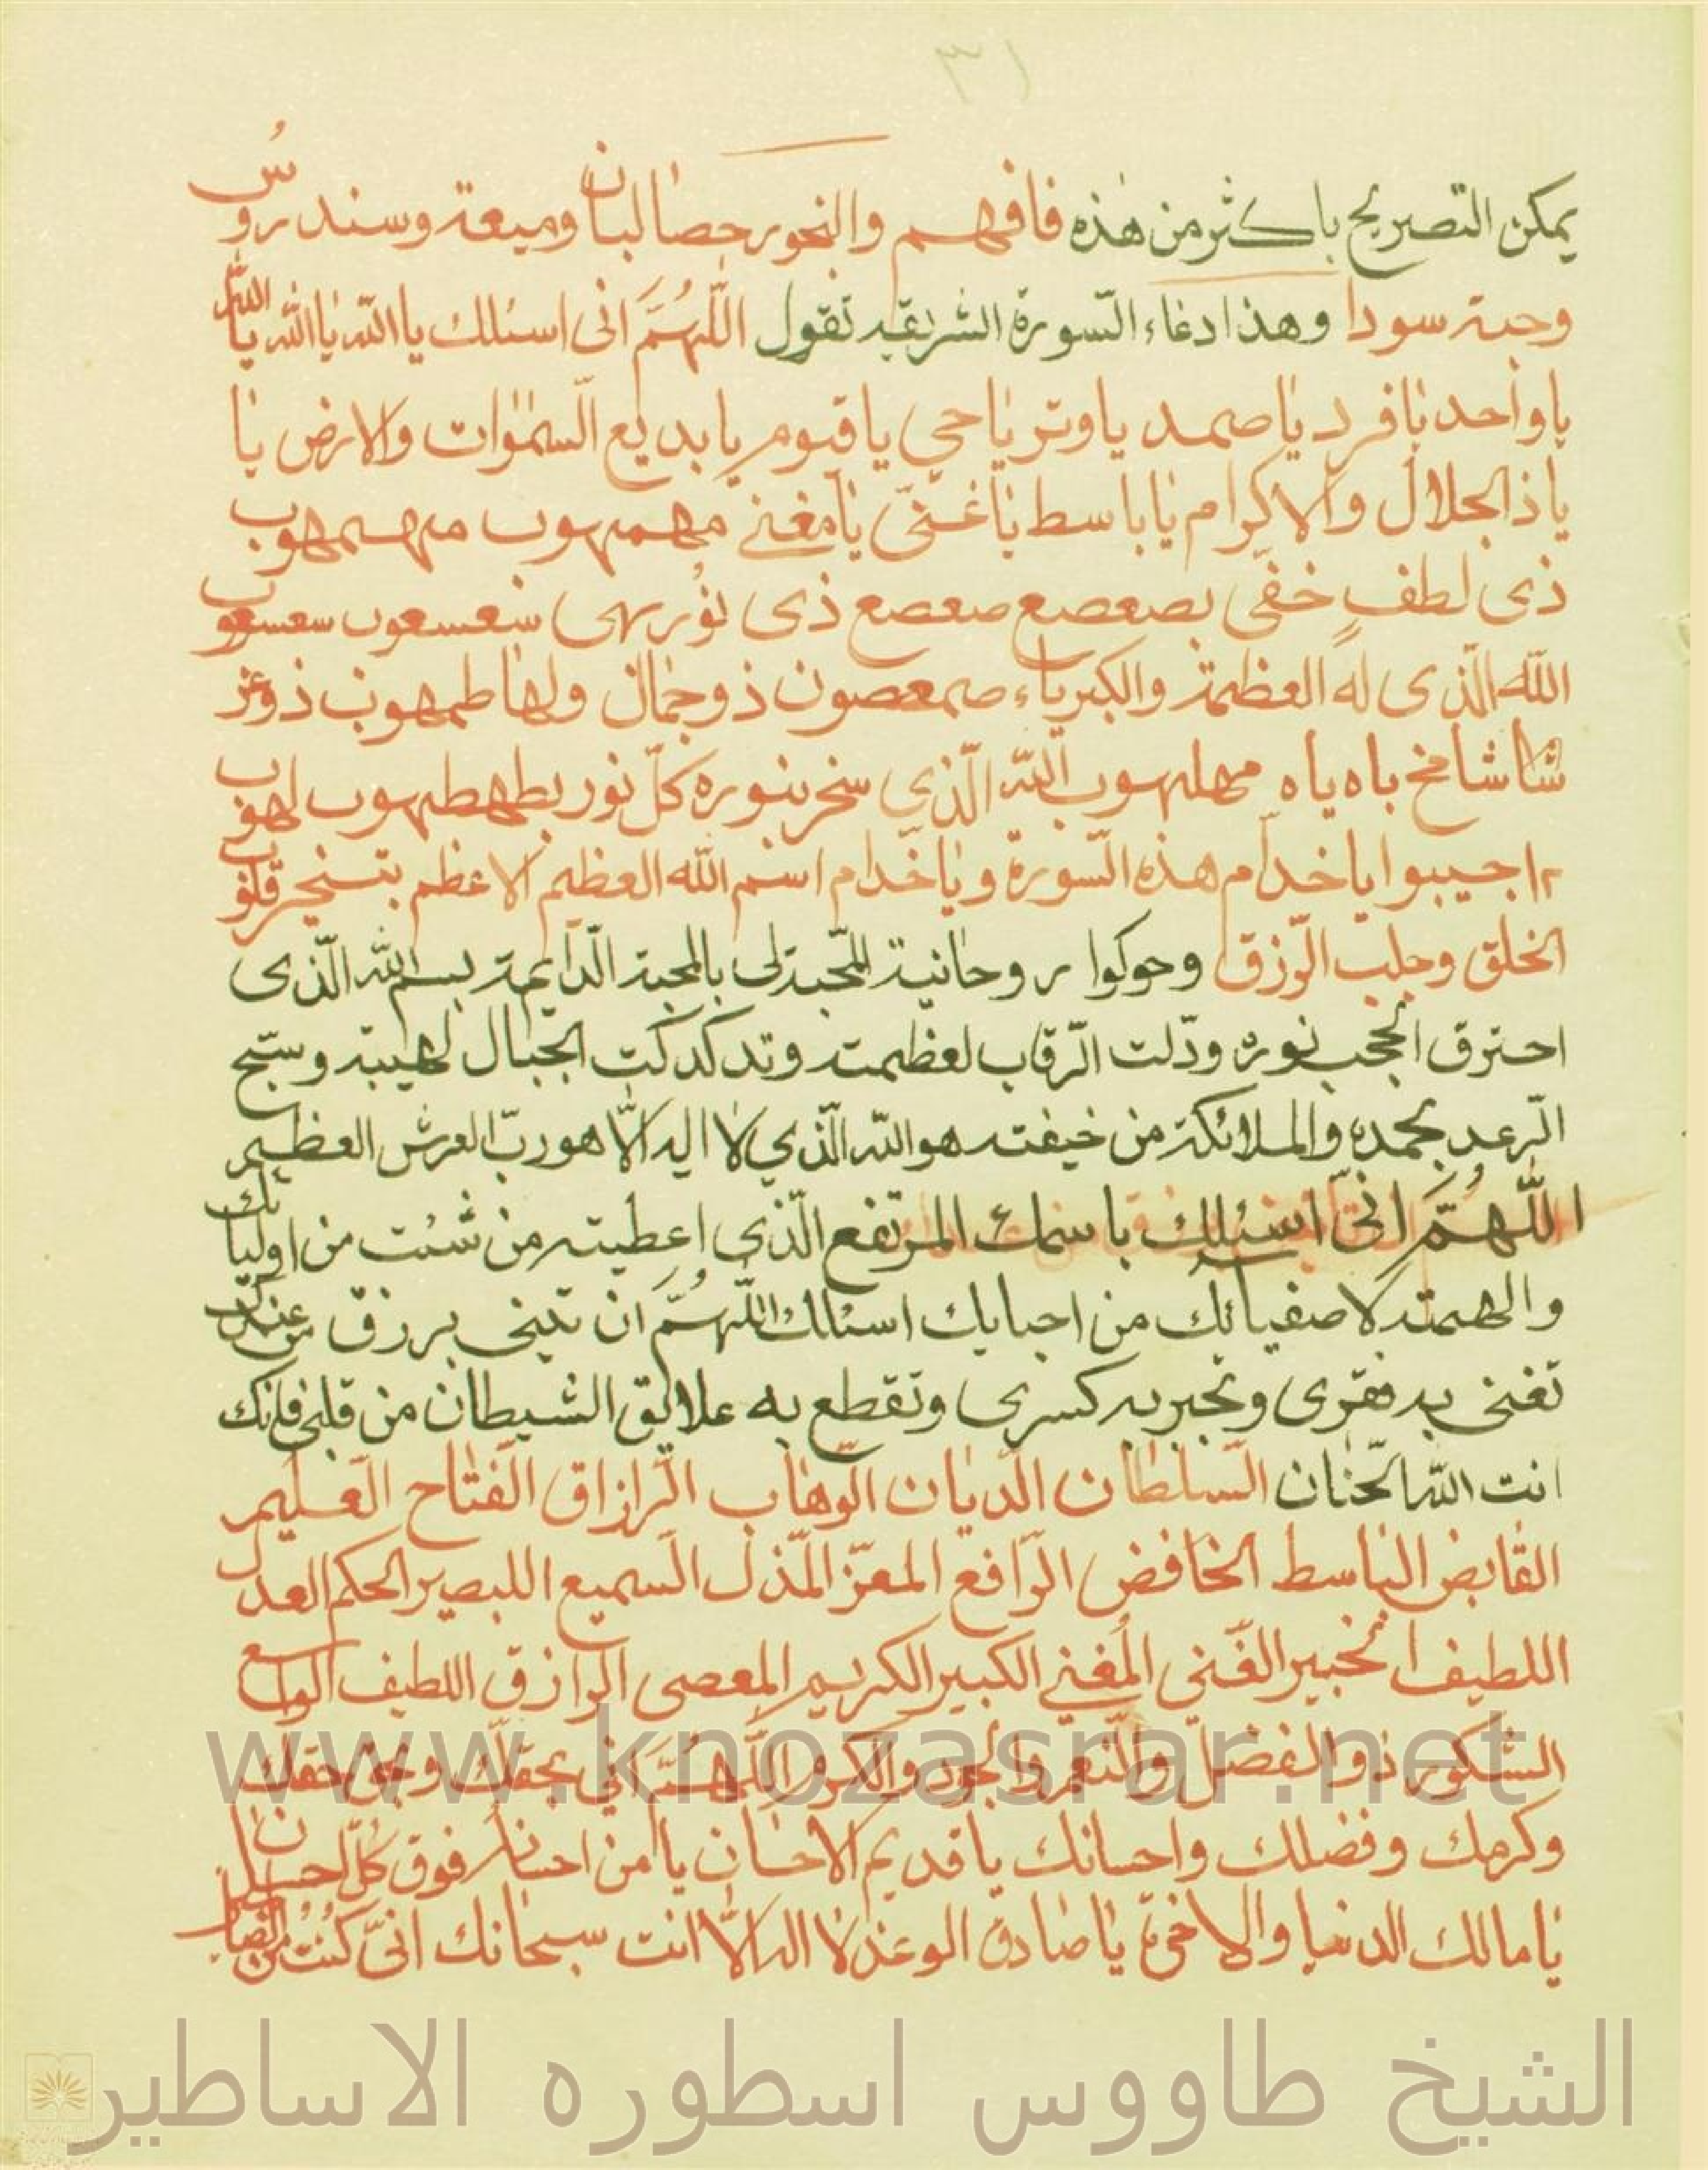 ٣١
يمكن التصريح باكثر من هذه فافهم والبخور حصا لبان وميعة وسندروس
وحبة سودا وهذا دعاء السورة الشريفه تقول اللهم انى اسئلك يا الله يا الله يا الله
يا واحد يا فرد يا صمد يا وتر يا حي يا قيوم يا بديع السموات والارض يا
يا ذالجلال والاكرام يا باسط يا غني يا مغني مهمهوب مهمهوب
ذى لطف خفى بصعصع صعصع ذى نور بهى سعسعوب سعسعوب
الله الذى له العظمة والكبرياء صمعصون ذو جمال ولها طمهوب ذو عز
شاشامخ ياه ياه مهلهوب الله الذي سخر بنوره كل نور بطهطهوب لهوب
اجيبوا يا خدام هذه السورة ويا خدام اسم الله العظيم الاعظم بتسخير قلوب
الخلق وجلب الرزق وحوكوا روحانية المحبة لى بالمحبة الدايمة بسم الله الذى
احترق الحجب نوره ودلت الرقاب لعظمته وتدكدكت الجبال لهيبته وسبح
الرعد بحمده والملائكة من خيفته هو الله الذي لا اله الا هو رب العرش العظيم
اللهم انى اسئلك باسمك المرتفع الذي اعطيته من شئت من اوليائك
والهمته لاصفيائك من احبابك اسئلك اللهم ان تاتينى برزق من عندك
تغنى به فقرى وتجبر به كسرى وتقطع به علايق الشيطان من قلبى فانك
انت الله الحنان السلطان الديان الوهاب الرازاق الفتاح العليم
القابض الباسط الخافض الرافع المعز المذل السميع اللبصير الحكم العدل
اللطيف الخبير الغني المغني الكبير الكريم المعصى الرازق اللطيف الواسع
الشكور ذو الفضل والنعم والجود والكرم اللهم اني بحقك وحق حقك
وكرمك وفضلك واحسانك يا قديم الاحسان يا من احسانه فوق كل احسان
يا مالك الدنيا والاخرة يا صادق الوعد لا اله الا انت سبحانك انى كنت من
www.knozasrar.net
الشيخ طاووس اسطوره الاساطير